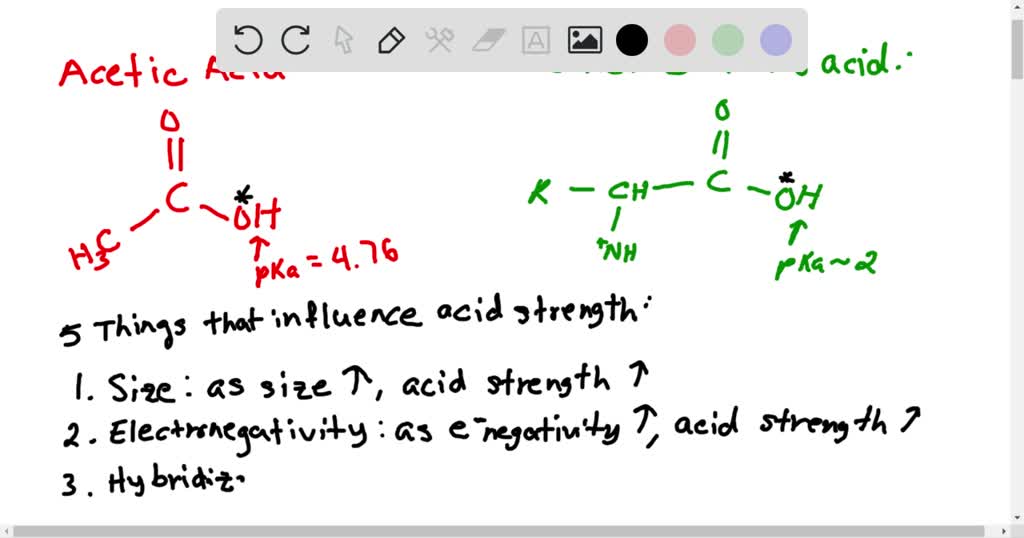 Acetic Acid
acid:
O
O
C
OH
*
H3C
pKa = 4.76
R - CH - C - OH
*
+NH
pKa ~ 2
5 Things that influence acid strength:
1. Size: as size ↑, acid strength ↑
2. Electronegativity: as e-negativity ↑, acid strength ↑
3. Hybridiz